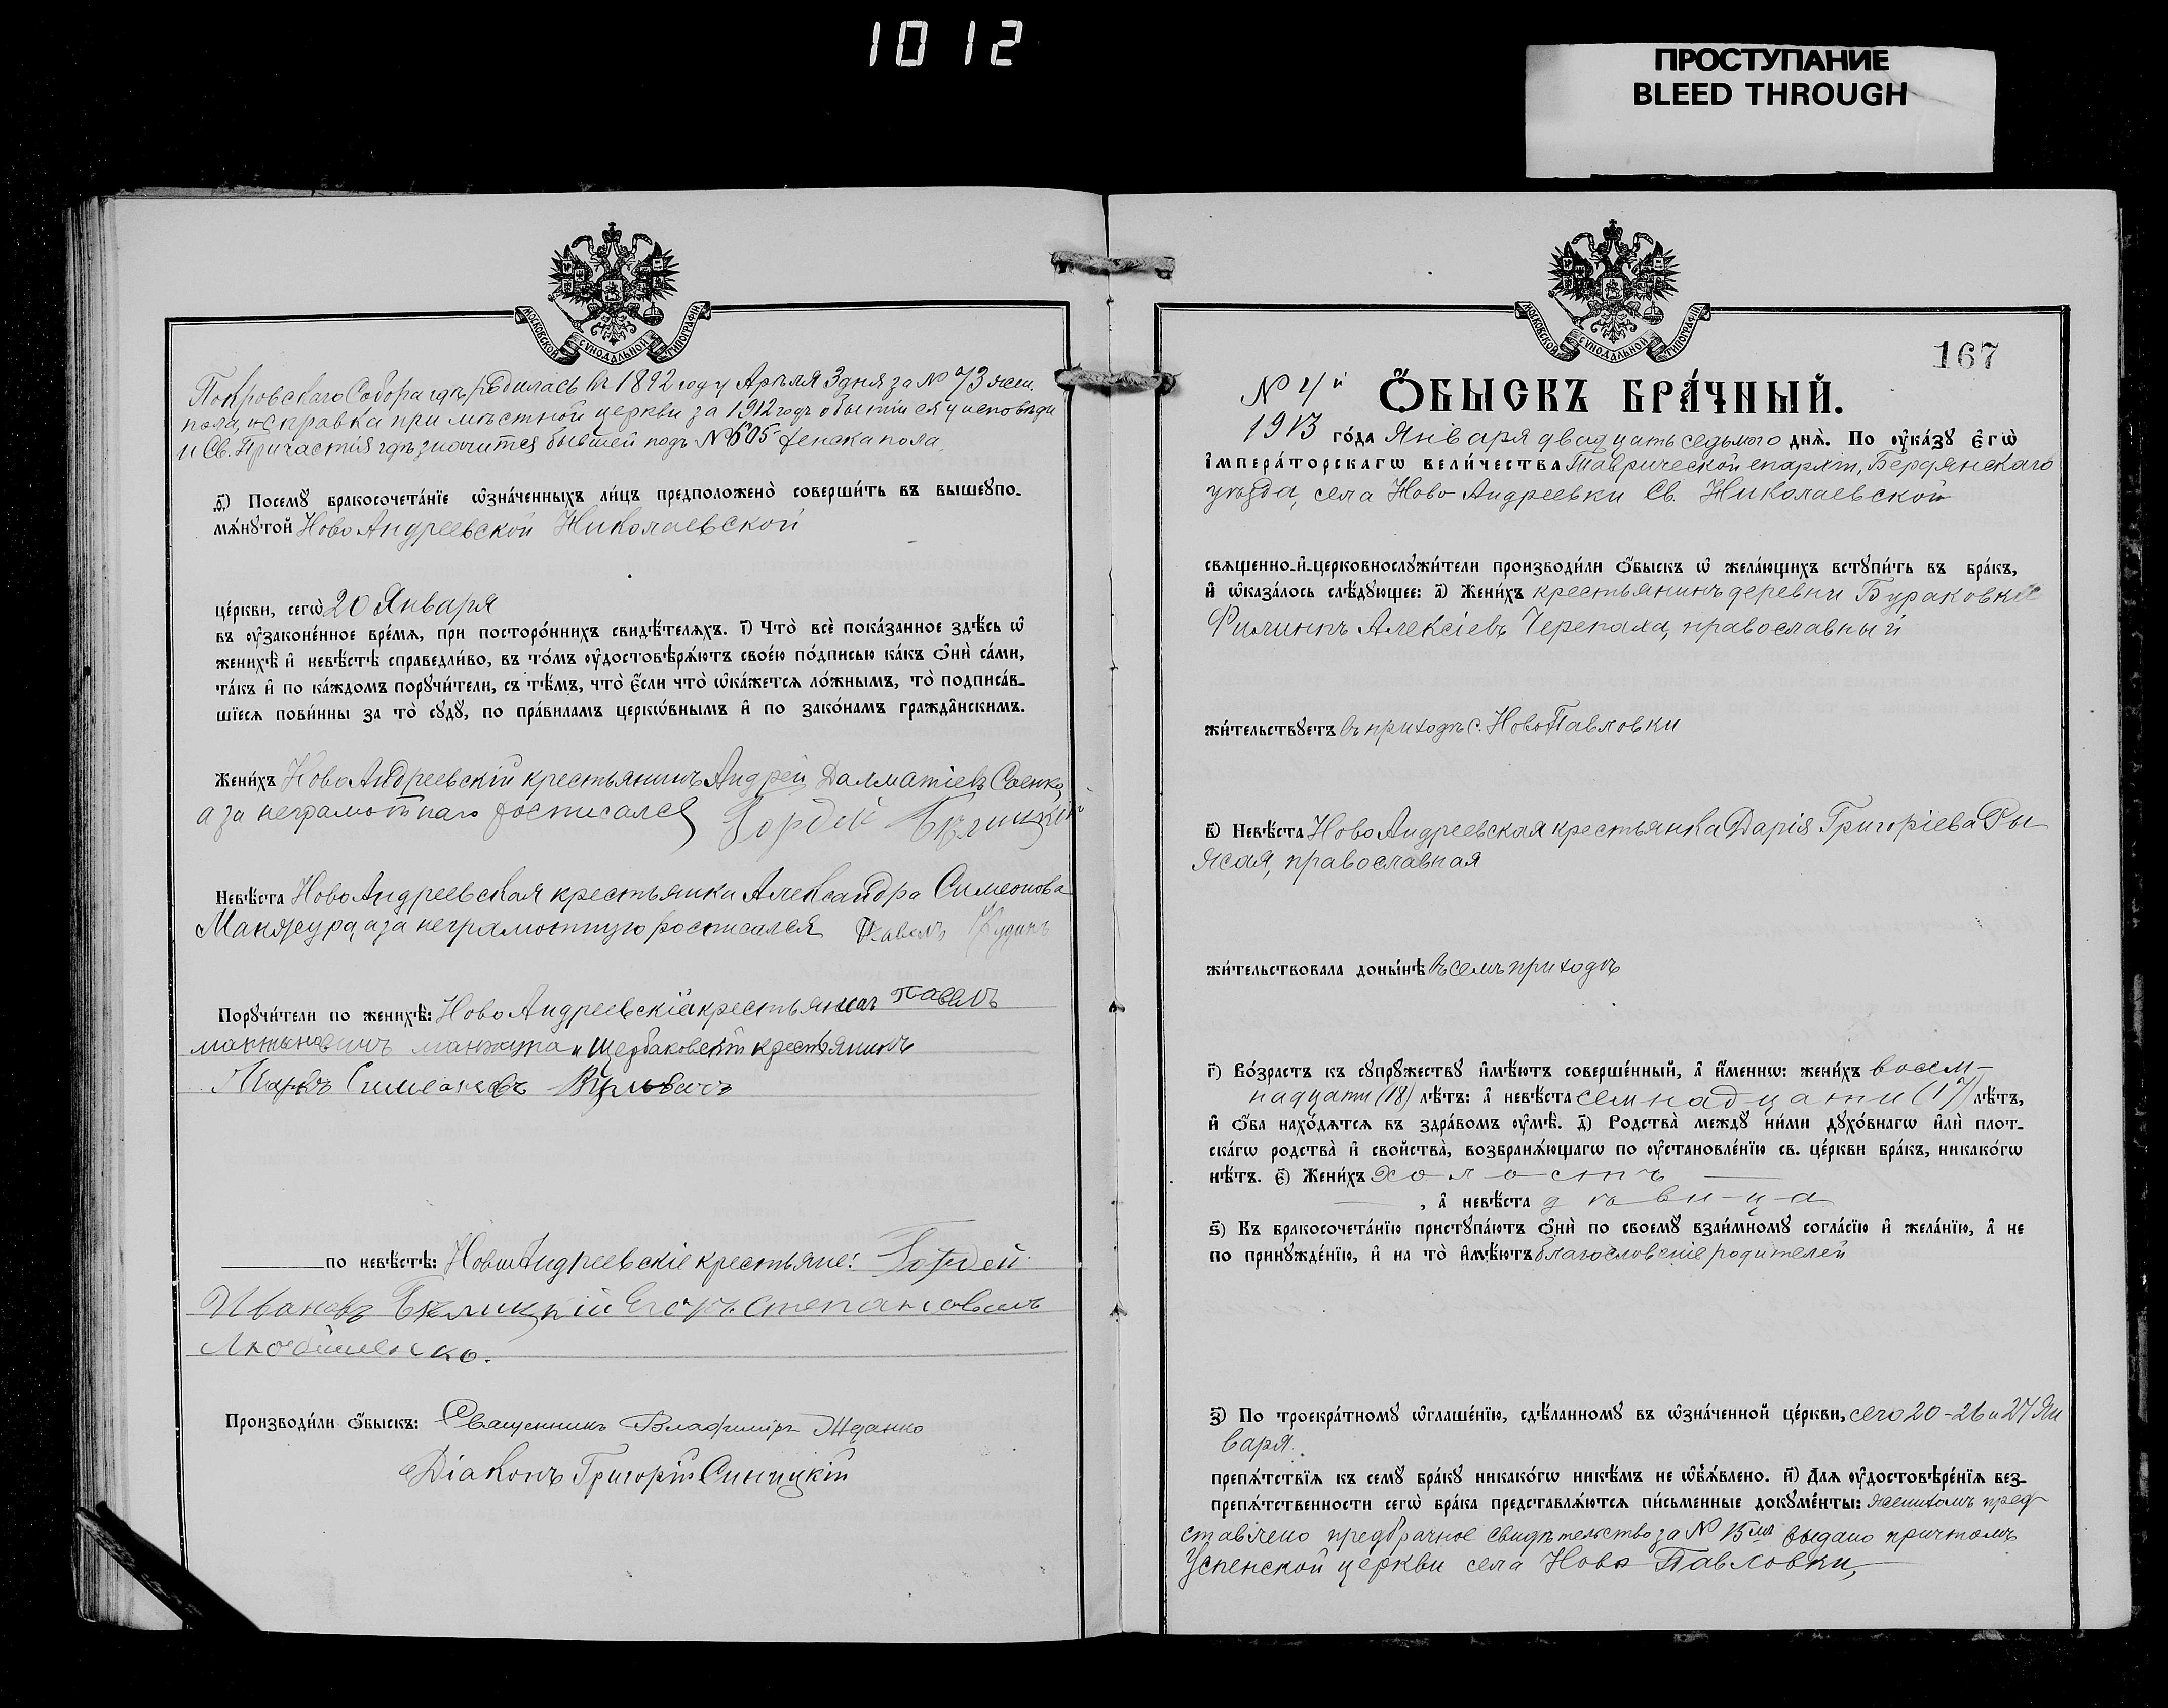 1012
ПРОСТУПАНИЕ
BLEED THROUGH
МОСКОВСКОЙ СѴНОДАЛЬНОЙ ТИПОГРАФІИ
Покровскаго Собора гдѣ родилась въ 1892 году Апрѣля 3 дня за № 73 жен.
пола, и справка при мѣстной церкви за 1912 годъ о бытіи ея у исповѣди
и Св. Причастія гдѣ значится бывшей подъ № 605 женска пола.
ѳ҃) Посемꙋ бракосочета́нїе ѡ҆зна́ченныхъ ли́цъ предположено̀ соверши́ть въ вышеꙋпо-
мѧ́нꙋтой Ново Андреевской Николаевской
це́ркви, сегѡ̀ 20 Января
въ ᲂу҆законе́нное вре́мѧ, при посторо́ннихъ свидѣ́телѧхъ. і҃) Что̀ всѐ пока́занное здѣ́сь ѡ҆
женихѣ̀ и҆ невѣ́стѣ справедли́во, въ то́мъ ᲂу҆достовѣрѧ́ютъ свое́ю по́дписью ка́къ ѻ҆нѝ са́ми,
та́къ и҆ по ка́ждомъ порꙋчи́тели, съ тѣ́мъ, что̀ є҆́сли что̀ ѡ҆ка́жетсѧ ло́жнымъ, то̀ подписа́в-
шїесѧ пови́нны за то̀ сꙋдꙋ̀, по пра́виламъ церко́внымъ и҆ по зако́намъ гражда́нскимъ.
Жени́хъ Ново Андреевскій крестьянинъ Андрей Далматіевъ Саенко,
а за неграмотнаго росписался Гордей Бѣлицкій
Невѣ́ста Ново Андреевская крестьянка Александра Симеонова
Манжура, а за неграмотную росписался Павелъ
Порꙋчи́тели по женихѣ̀: Ново Андреевскій крестьянинъ Павелъ
манжура и Щербаковскій крестьянинъ
Симеоновъ
по невѣ́стѣ: Ново Андреевскіе крестьяне: Гордей
Ивановъ Бѣлицкій Егоръ Степановичъ
Производи́ли ѻ҆́быскъ: Священникъ Владиміръ Жданко
Діаконъ Григорій Синицкій
МОСКОВСКОЙ СѴНОДАЛЬНОЙ ТИПОГРАФІИ
167
№ 4й
Ѻ҆́БЫСКЪ БРА́ЧНЫЙ.
1913 го́да Января двадцать седьмого днѧ̀. По ᲂу҆ка́зꙋ є҆гѡ̀
і҆мпера́торскагѡ вели́чества Таврической епархіи, Бердянскаго
уѣзда, села Ново Андреевки Св. Николаевской
свѧщенно-и҆-церковнослꙋжи́тели производи́ли ѻ҆́быскъ ѡ҆ жела́ющихъ встꙋпи́ть въ бра́къ,
и҆ ѡ҆каза́лось слѣ́дꙋющее: а҃) Жени́хъ крестьянинъ деревни Бураковки
Филиппъ Алексіевъ Черепаха, православный
жи́тельствꙋетъ въ приходѣ с. Ново Павловки
в҃) Невѣ́ста Ново Андреевская крестьянка Дарія Григоріева Ры-
жая, православная
жи́тельствовала доны́нѣ въ семъ приходѣ
г҃) Во́зрастъ къ сꙋпрꙋ́жествꙋ и҆мѣ́ютъ соверше́нный, а҆ и҆́менно: жени́хъ восем-
надцати (18) лѣ́тъ: а҆ невѣ́ста семнадцати (17) лѣ́тъ,
и҆ ѻ҆́ба нахо́дѧтсѧ въ здра́вомъ ᲂу҆мѣ̀. д҃) Родства̀ междꙋ̀ ни́ми дꙋхо́внагѡ и҆лѝ плот-
ска́гѡ родства̀ и҆ сво́йства, возбранѧ́ющагѡ по ᲂу҆становле́нїю св. це́ркви бра́къ, никако́гѡ
нѣ́тъ. є҃) Жени́хъ холостъ
, а҆ невѣ́ста дѣвица
ѕ҃) Къ бракосочета́нїю пристꙋпа́ютъ ѻ҆нѝ по своемꙋ̀ взаи́мномꙋ согла́сїю и҆ жела́нїю, а҆ не
по принꙋжде́нїю, и҆ на то̀ и҆мѣ́ютъ благословеніе родителей
з҃) По троекра́тномꙋ ѡ҆глаше́нїю, сдѣ́ланномꙋ въ ѡ҆зна́ченной це́ркви, сего 20-26 и 27 Ян
варя.
препѧ́тствїѧ къ семꙋ̀ бра́кꙋ никако́гѡ никѣ́мъ не ѡ҆б̾ѧ́влено. и҃) Длѧ ᲂу҆достовѣре́нїѧ без-
препѧ́тственности сегѡ̀ бра́ка представлѧ́ютсѧ пи́сьменные докꙋме́нты: женихомъ пред-
ставлено предбрачное свидѣтельство за № 15мъ выдано причтомъ
Успенской церкви села Ново Павловки,